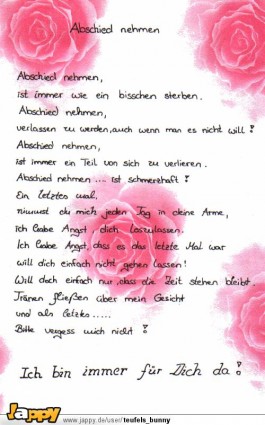 Abschied nehmen
Abschied nehmen,
ist immer wie ein bisschen sterben.
Abschied nehmen,
verlassen zu werden, auch wenn man es nicht will!
Abschied nehmen,
ist immer ein Teil von sich zu verlieren.
Abschied nehmen .... ist schmerzhaft!
Ein letztes mal,
nimmst du mich jeden Tag in deine Arme,
ich habe Angst, dich loszulassen.
Ich habe Angst, dass es das letzte Mal war
will dich einfach nicht gehen lassen!
Will doch einfach nur, dass die Zeit stehen bleibt.
Tränen fließen über mein Gesicht
und als letztes.....
Bitte vergess mich nicht!
Ich bin immer für Dich da!
Jappy
www.jappy.de/user/teufels_bunny